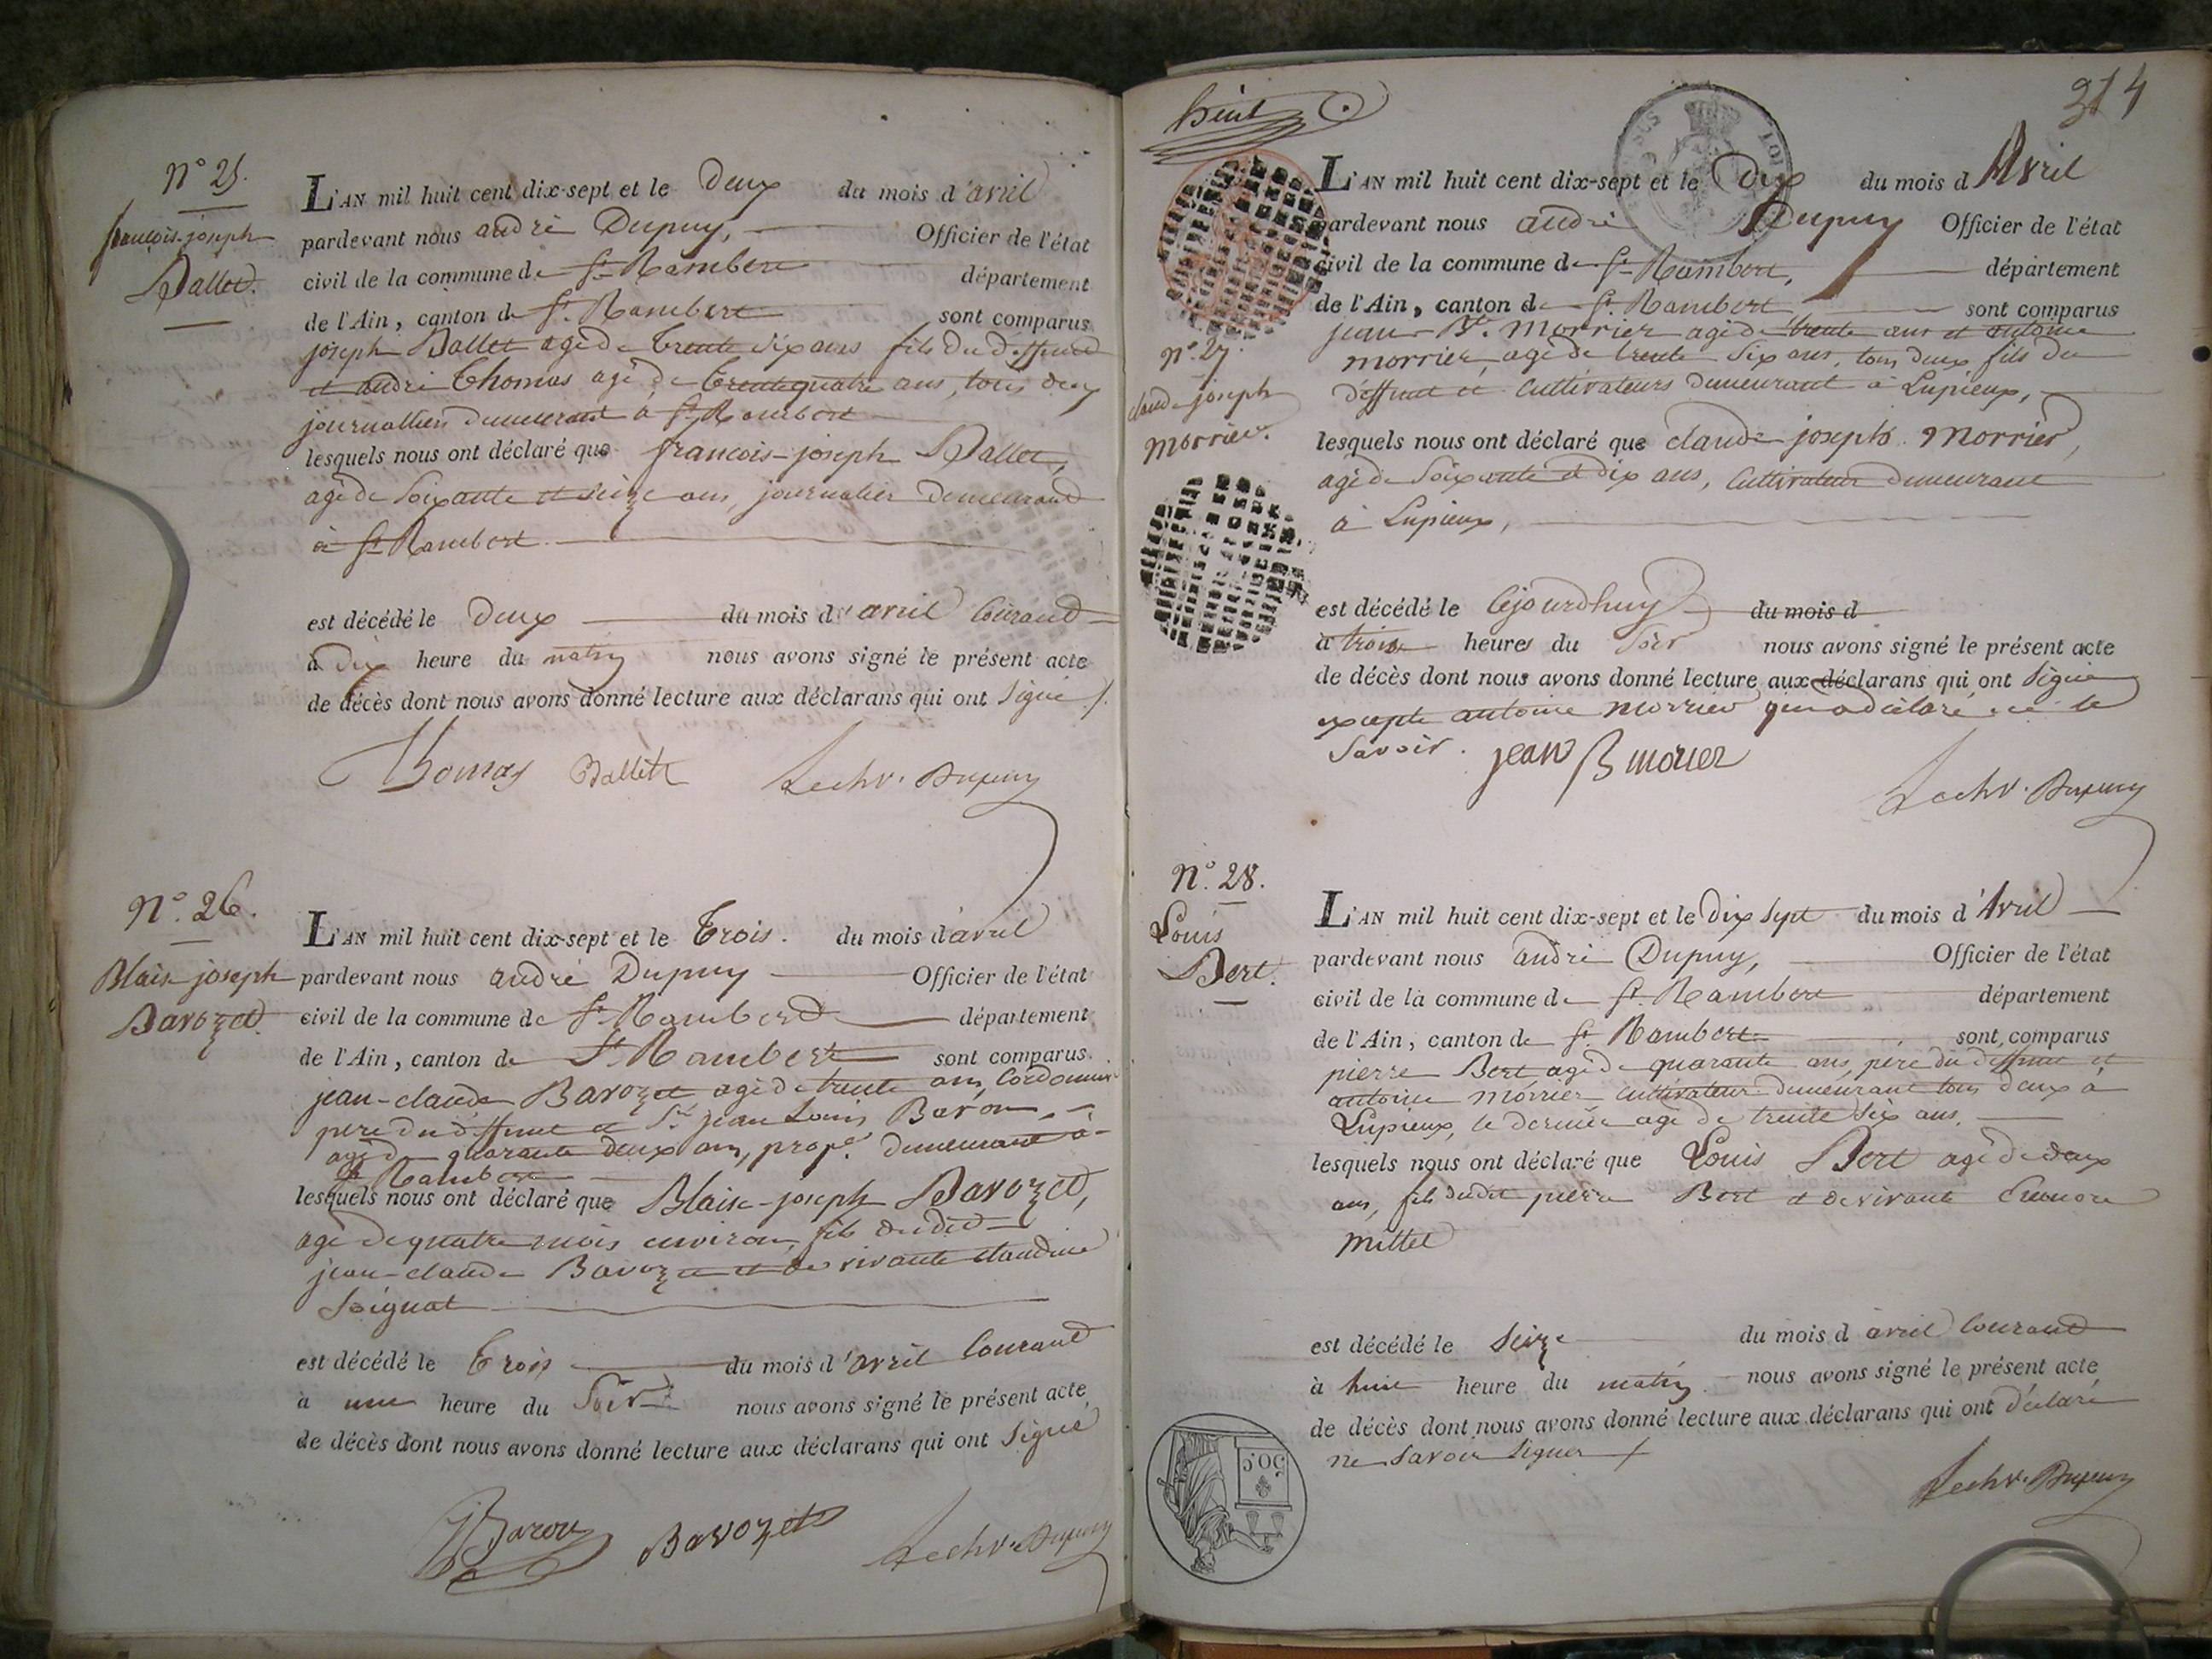 N° 25.
françois-joseph
Ballet.
L'AN mil huit cent dix-sept et le Deux du mois d'avril
pardevant nous andré Dupuy, Officier de l'état
civil de la commune de St Rambert département
de l'Ain, canton de St Rambert sont comparus
joseph Ballet agé de trente six ans fils du deffunt
et andré Thomas agé de trente quatre ans, tous deux
journalliers demeurant à St Rambert
lesquels nous ont déclaré que françois-joseph Ballet,
agé de soixante et seize ans, journalier demeurant
à St Rambert.
est décédé le Deux du mois d'avril courant
à dix heure du matin nous avons signé le présent acte
de décès dont nous avons donné lecture aux déclarans qui ont signé ./.
Thomas Ballet Lechr. Dupuy
N° 26.
Blaise joseph
Bavozet
L'AN mil huit cent dix-sept et le Trois. du mois d'avril
pardevant nous andré Dupuy Officier de l'état
civil de la commune de St Rambert département
de l'Ain, canton de St Rambert sont comparus
jean-claude Bavozet agé de trente ans, Cordonnier
pere du deffunt et Sr jean Louis Baron
agé de quarante deux ans, propre. demeurant à
St Rambert
lesquels nous ont déclaré que Blaise-joseph Bavozet,
agé de quatre mois environ, fils dudit
jean-claude Bavozet et de vivante claudine
Soignat
est décédé le trois du mois d'avril courant
à une heure du soir nous avons signé le présent acte
de décès dont nous avons donné lecture aux déclarans qui ont signé
Baron Bavozet Lechr. Dupuy
huit
314
N° 27.
claude joseph
Morrier.
L'AN mil huit cent dix-sept et le Dix du mois d Avril
pardevant nous andré Dupuy Officier de l'état
civil de la commune de St Rambert, département
de l'Ain, canton de St Rambert sont comparus
jean-Bte. Morrier agé de trente ans et antoine
morrier, agé de trente six ans, tous deux fils du
deffunt et cultivateurs demeurant à Lupieux,
lesquels nous ont déclaré que claude joseph Morrier,
agé de soixante et dix ans, cultivateur demeurant
à Lupieux,
est décédé le cejourdhuy du mois d
à trois heures du soir nous avons signé le présent acte
de décès dont nous avons donné lecture aux déclarans qui ont signé
excepté antoine morrier qui a déclaré ne le
savoir. jean B morier
Lechr. Dupuy
N° 28.
Louis
Bert.
L'AN mil huit cent dix-sept et le dix sept du mois d'Avril
pardevant nous andré Dupuy, Officier de l'état
civil de la commune de St Rambert département
de l'Ain, canton de St Rambert sont comparus
pierre Bert agé de quarante ans, père du deffunt et
antoine morrier cultivateur demeurant tous deux à
Lupieux, le dernier agé de trente six ans,
lesquels nous ont déclaré que Louis Bert agé de deux
ans, fils dudit pierre Bert et de vivante Eleonore
Mittel
est décédé le seize du mois d avril courant
à huit heure du matin nous avons signé le présent acte
de décès dont nous avons donné lecture aux déclarans qui ont déclaré
ne savoir signer
Lechr. Dupuy
50.C